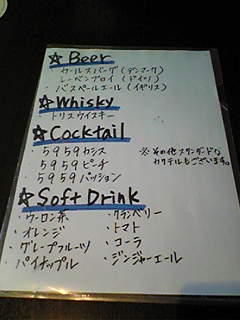 ☆Beer
・カールスバーグ(デンマーク)
・レーベンブロイ(ドイツ)
・バスペールエール(イギリス)
☆Whisky
トリスウイスキー
☆Cocktail
・5959カシス
・5959ピーチ
・5959パッション
※その他スタンダードな
カクテルもございます。
☆Soft Drink
・ウーロン茶
・オレンジ
・グレープフルーツ
・パイナップル
・クランベリー
・トマト
・コーラ
・ジンジャーエール